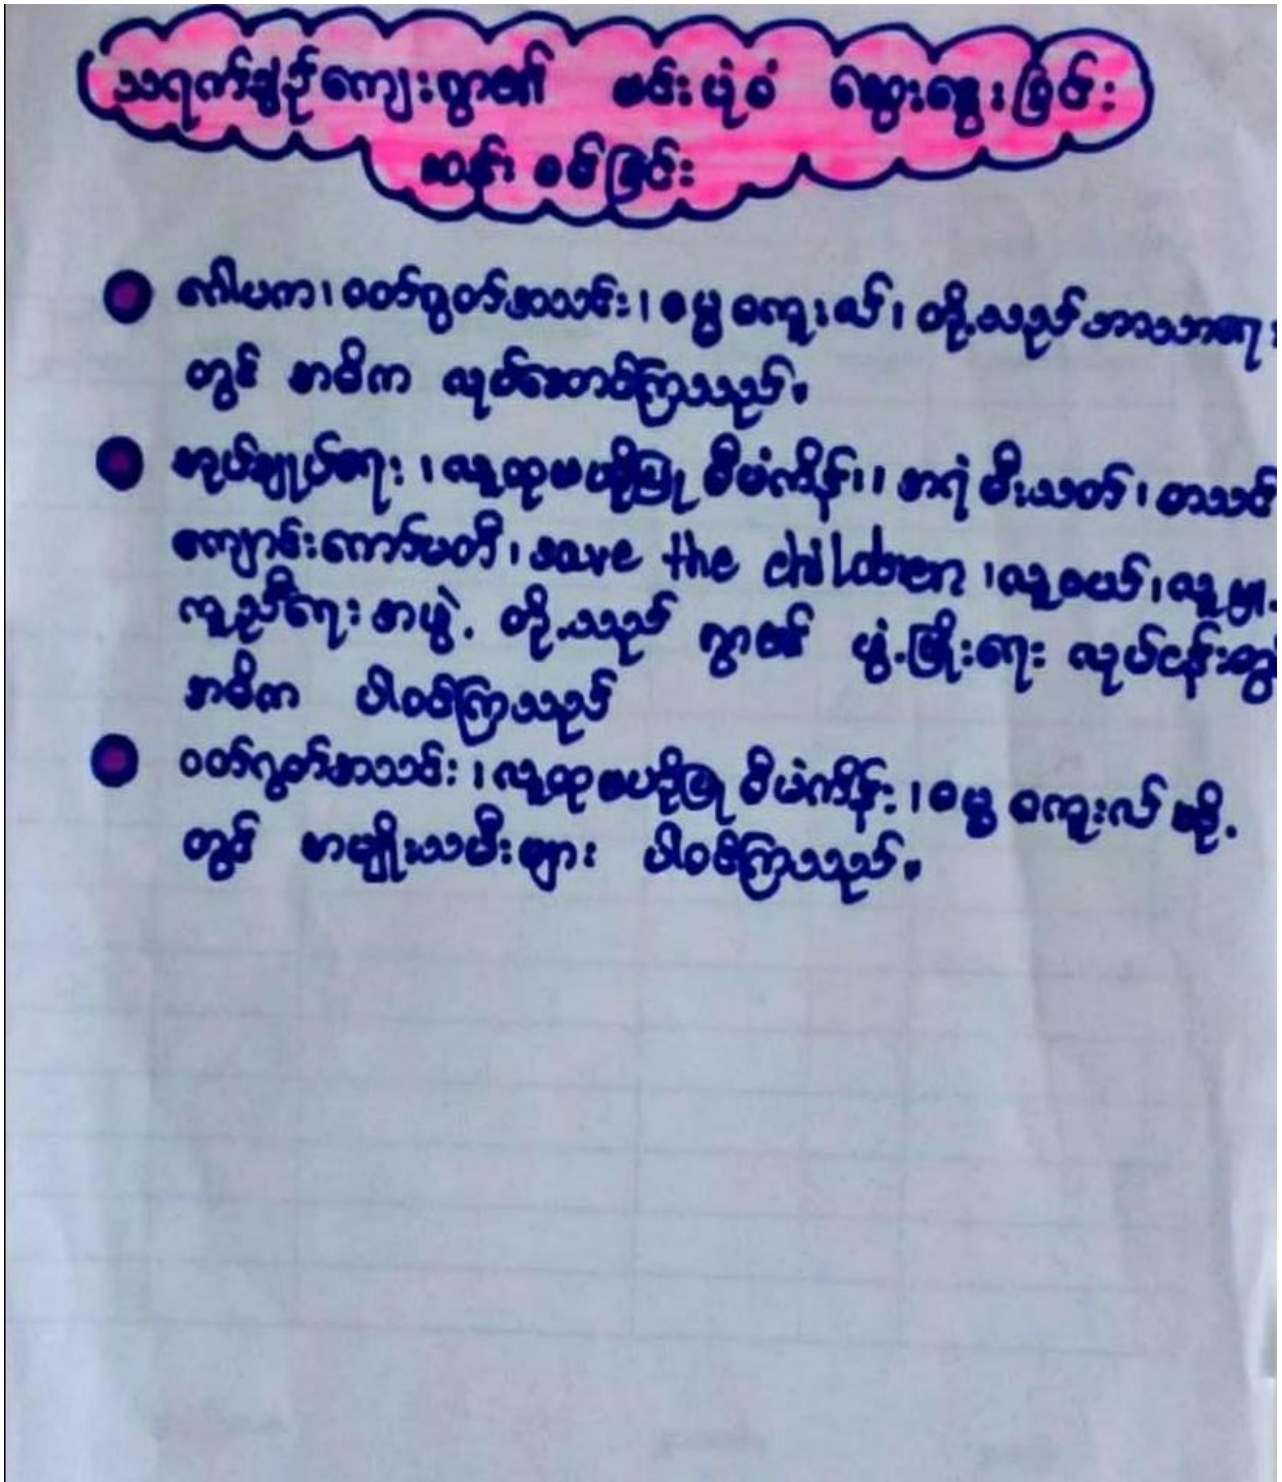 သရက်ချဉ်ကျေးရွာ၏ ဗင်းပုံစံ ဆွေးနွေးခြင်း
ဆန်းစစ်ခြင်း
ဂေါပက၊ ဝတ်ရွတ်အသင်း၊ ဓမ္မစကူးလ်၊ တို့သည် ဘာသာရေး
တွင် အဓိက လုပ်ဆောင်ကြသည်။
အုပ်ချုပ်ရေး၊ လူထုဗဟိုပြု စီမံကိန်း၊ အရံမီးသတ်၊ စာသင်
ကျောင်းကော်မတီ၊ save the children ၊ လူငယ်၊ လူမှု
ကူညီရေးအဖွဲ့ တို့သည် ရွာ၏ ဖွံ့ဖြိုးရေး လုပ်ငန်းတွင်
အဓိက ပါဝင်ကြသည်
ဝတ်ရွတ်အသင်း၊ လူထုဗဟိုပြု စီမံကိန်း၊ ဓမ္မစကူးလ် တို့
တွင် အမျိုးသမီးများ ပါဝင်ကြသည်။